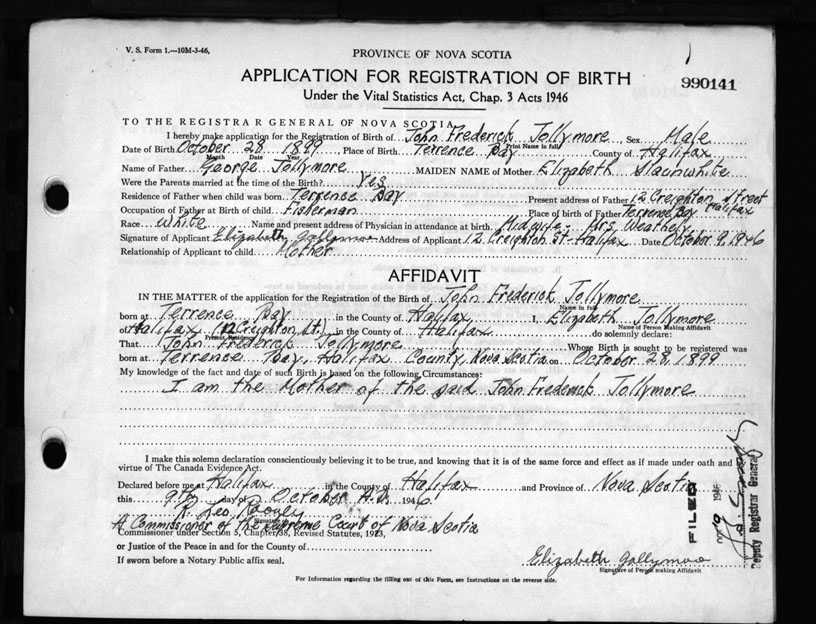 V. S. Form 1.—10M-3-46.
PROVINCE OF NOVA SCOTIA
APPLICATION FOR REGISTRATION OF BIRTH
990141
Under the Vital Statistics Act, Chap. 3 Acts 1946
TO THE REGISTRAR GENERAL OF NOVA SCOTIA
I hereby make application for the Registration of Birth of John Frederick Jollymore, Sex Male
Print Name in full
Date of Birth October 28 1899 Place of Birth Terrence Bay County of Halifax
Month Date Year
Name of Father George Jollymore MAIDEN NAME of Mother Elizabeth Slaunwhite
Were the Parents married at the time of the Birth? Yes
Residence of Father when child was born Terrence Bay Present address of Father 12 Creighton Street Halifax
Occupation of Father at Birth of child Fisherman Place of birth of Father Terrence Bay
Race White Name and present address of Physician in attendance at birth Midwife, Mrs. Weathely
Signature of Applicant Elizabeth gallymoo Address of Applicant 12 Creighton St. Halifax Date October 9, 1946
Relationship of Applicant to child Mother
AFFIDAVIT
IN THE MATTER of the application for the Registration of the Birth of John Frederick Jollymore
Name in full
born at Terrence Bay in the County of Halifax I, Elizabeth Jollymore
Name of Person Making Affidavit
of Halifax (12 Creighton St.) in the County of Halifax do solemnly declare:
Present Residence
That John Frederick Jollymore Whose Birth is sought to be registered was
born at Terrence Bay, Halifax County, Nova Scotia on October 28, 1899
My knowledge of the fact and date of such Birth is based on the following Circumstances:
I am the Mother of the said John Frederick Jollymore
I make this solemn declaration conscientiously believing it to be true, and knowing that it is of the same force and effect as if made under oath and
virtue of The Canada Evidence Act.
Declared before me at Halifax in the County of Halifax and Province of Nova Scotia
this 9th day of October A.D. 1946
R. Leo
A Commissioner of the Supreme Court of Nova Scotia
Commissioner under Section 5, Chapter 38, Revised Statutes, 1923,
or Justice of the Peace in and for the County of
If sworn before a Notary Public affix seal.
Elizabeth gallymoo
Signature of Person making Affidavit
For Information regarding the filling out of this Form, see Instructions on the reverse side.
FILED
1946
Deputy Registrar General